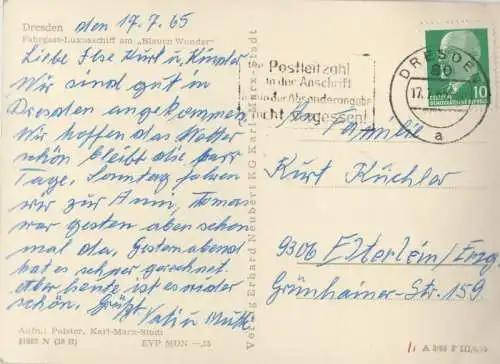 Dresden den 17.7.65
Fahrgast-Luxusschiff am „Blauen Wunder"
Liebe Ilse Kurt u. Kinder
Wir sind gut in
Dresden angekommen
Wir hoffen das Wetter
schön bleibt die paar
Tage. Sonntag fahren
wir zur Anni, Tomas
war gestern aber schon
mal da. Gestern abend
hat es schwer geregnet.
Aber heute ist es wieder
schön. Grüßt
Vati u. Mutti
Aufn.: Polster, Karl-Marx-Stadt
EVP MDN —,25
Verlag Erhard Neubert KG Karl-Marx-Stadt
Postleitzahl
in der Anschrift
und der Absenderangabe
nicht vergessen!
DRESDEN
17.
a
10
Familie
Kurt Küchler
9306 Elterlein/Erzg
Grünhainer-Str. 159.